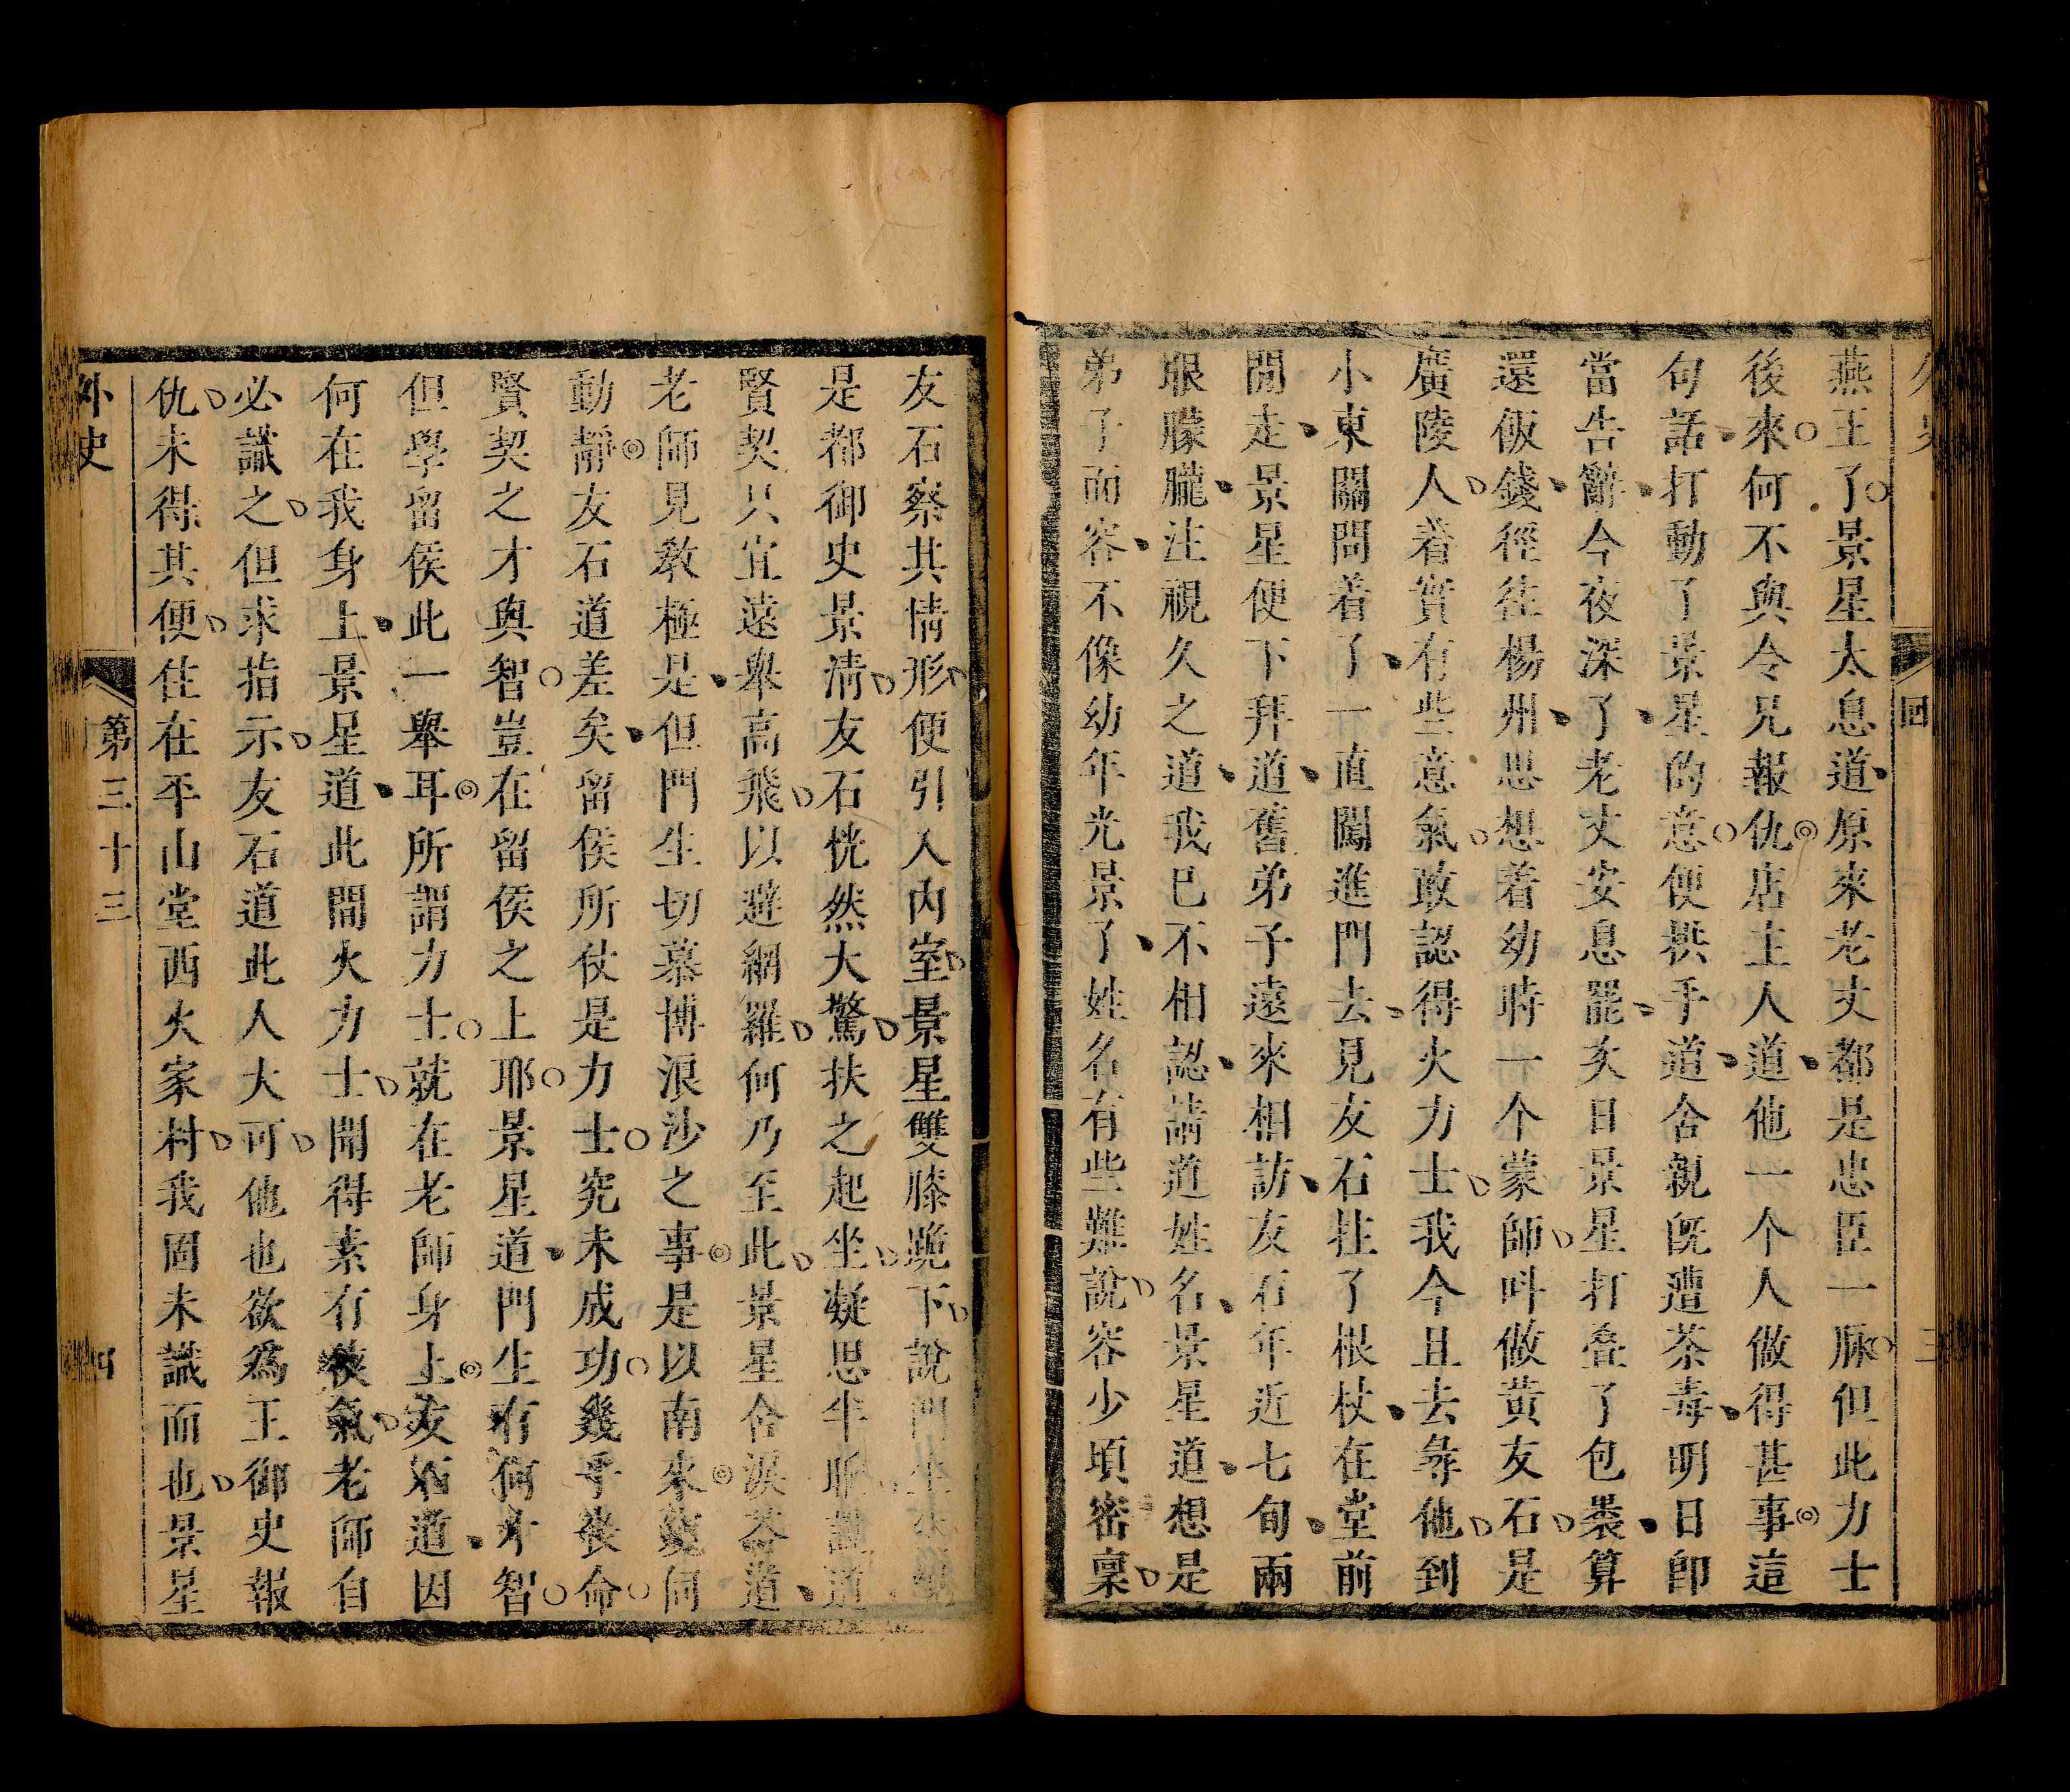 燕王了景星太息道原來老丈都是忠臣一脉但此力士
後來何不與令兄報仇店主人道他一个人做得甚事這
句話打動了景星的意便拱手道令親旣遭荼毒明日卽
當告辭今夜深了老丈安息罷次日景星打叠了包裹算
還飯錢徑往楊州思想着幼時一个蒙師呌做黄友石是
廣陵人着實有些意氣敢認得火力士我今且去尋他到
小東關問着了一直闖進門去見友石拄了根杖在堂前
閒走景星便下拜道舊弟子遠來相訪友石年近七旬兩
眼朦朧注視久之道我已不相認請道姓名景星道想是
弟子面容不像幼年光景了姓名有些難說容少頃密稟
友石察其情形便引入內室景星雙膝跪下說門生
是都御史景淸友石恍然大驚扶之起坐凝思半晌說道
賢契只宜遠舉高飛以避網羅何乃至此景星含淚答道
老師見敎極是但門生切慕博浪沙之事是以南來窺伺
動靜友石道差矣留侯所仗是力士究未成功幾乎喪命
賢契之才與智豈在留侯之上耶景星道門生有何才智
但學留侯此一舉耳所謂力士就在老師身上友石道因
何在我身上景星道此間火力士聞得素有俠氣老師自
必識之但求指示友石道此人大可他也欲爲王御史報
仇未得其便住在平山堂西火家村我固未識而也景星
外史
第三十三
四
回
三